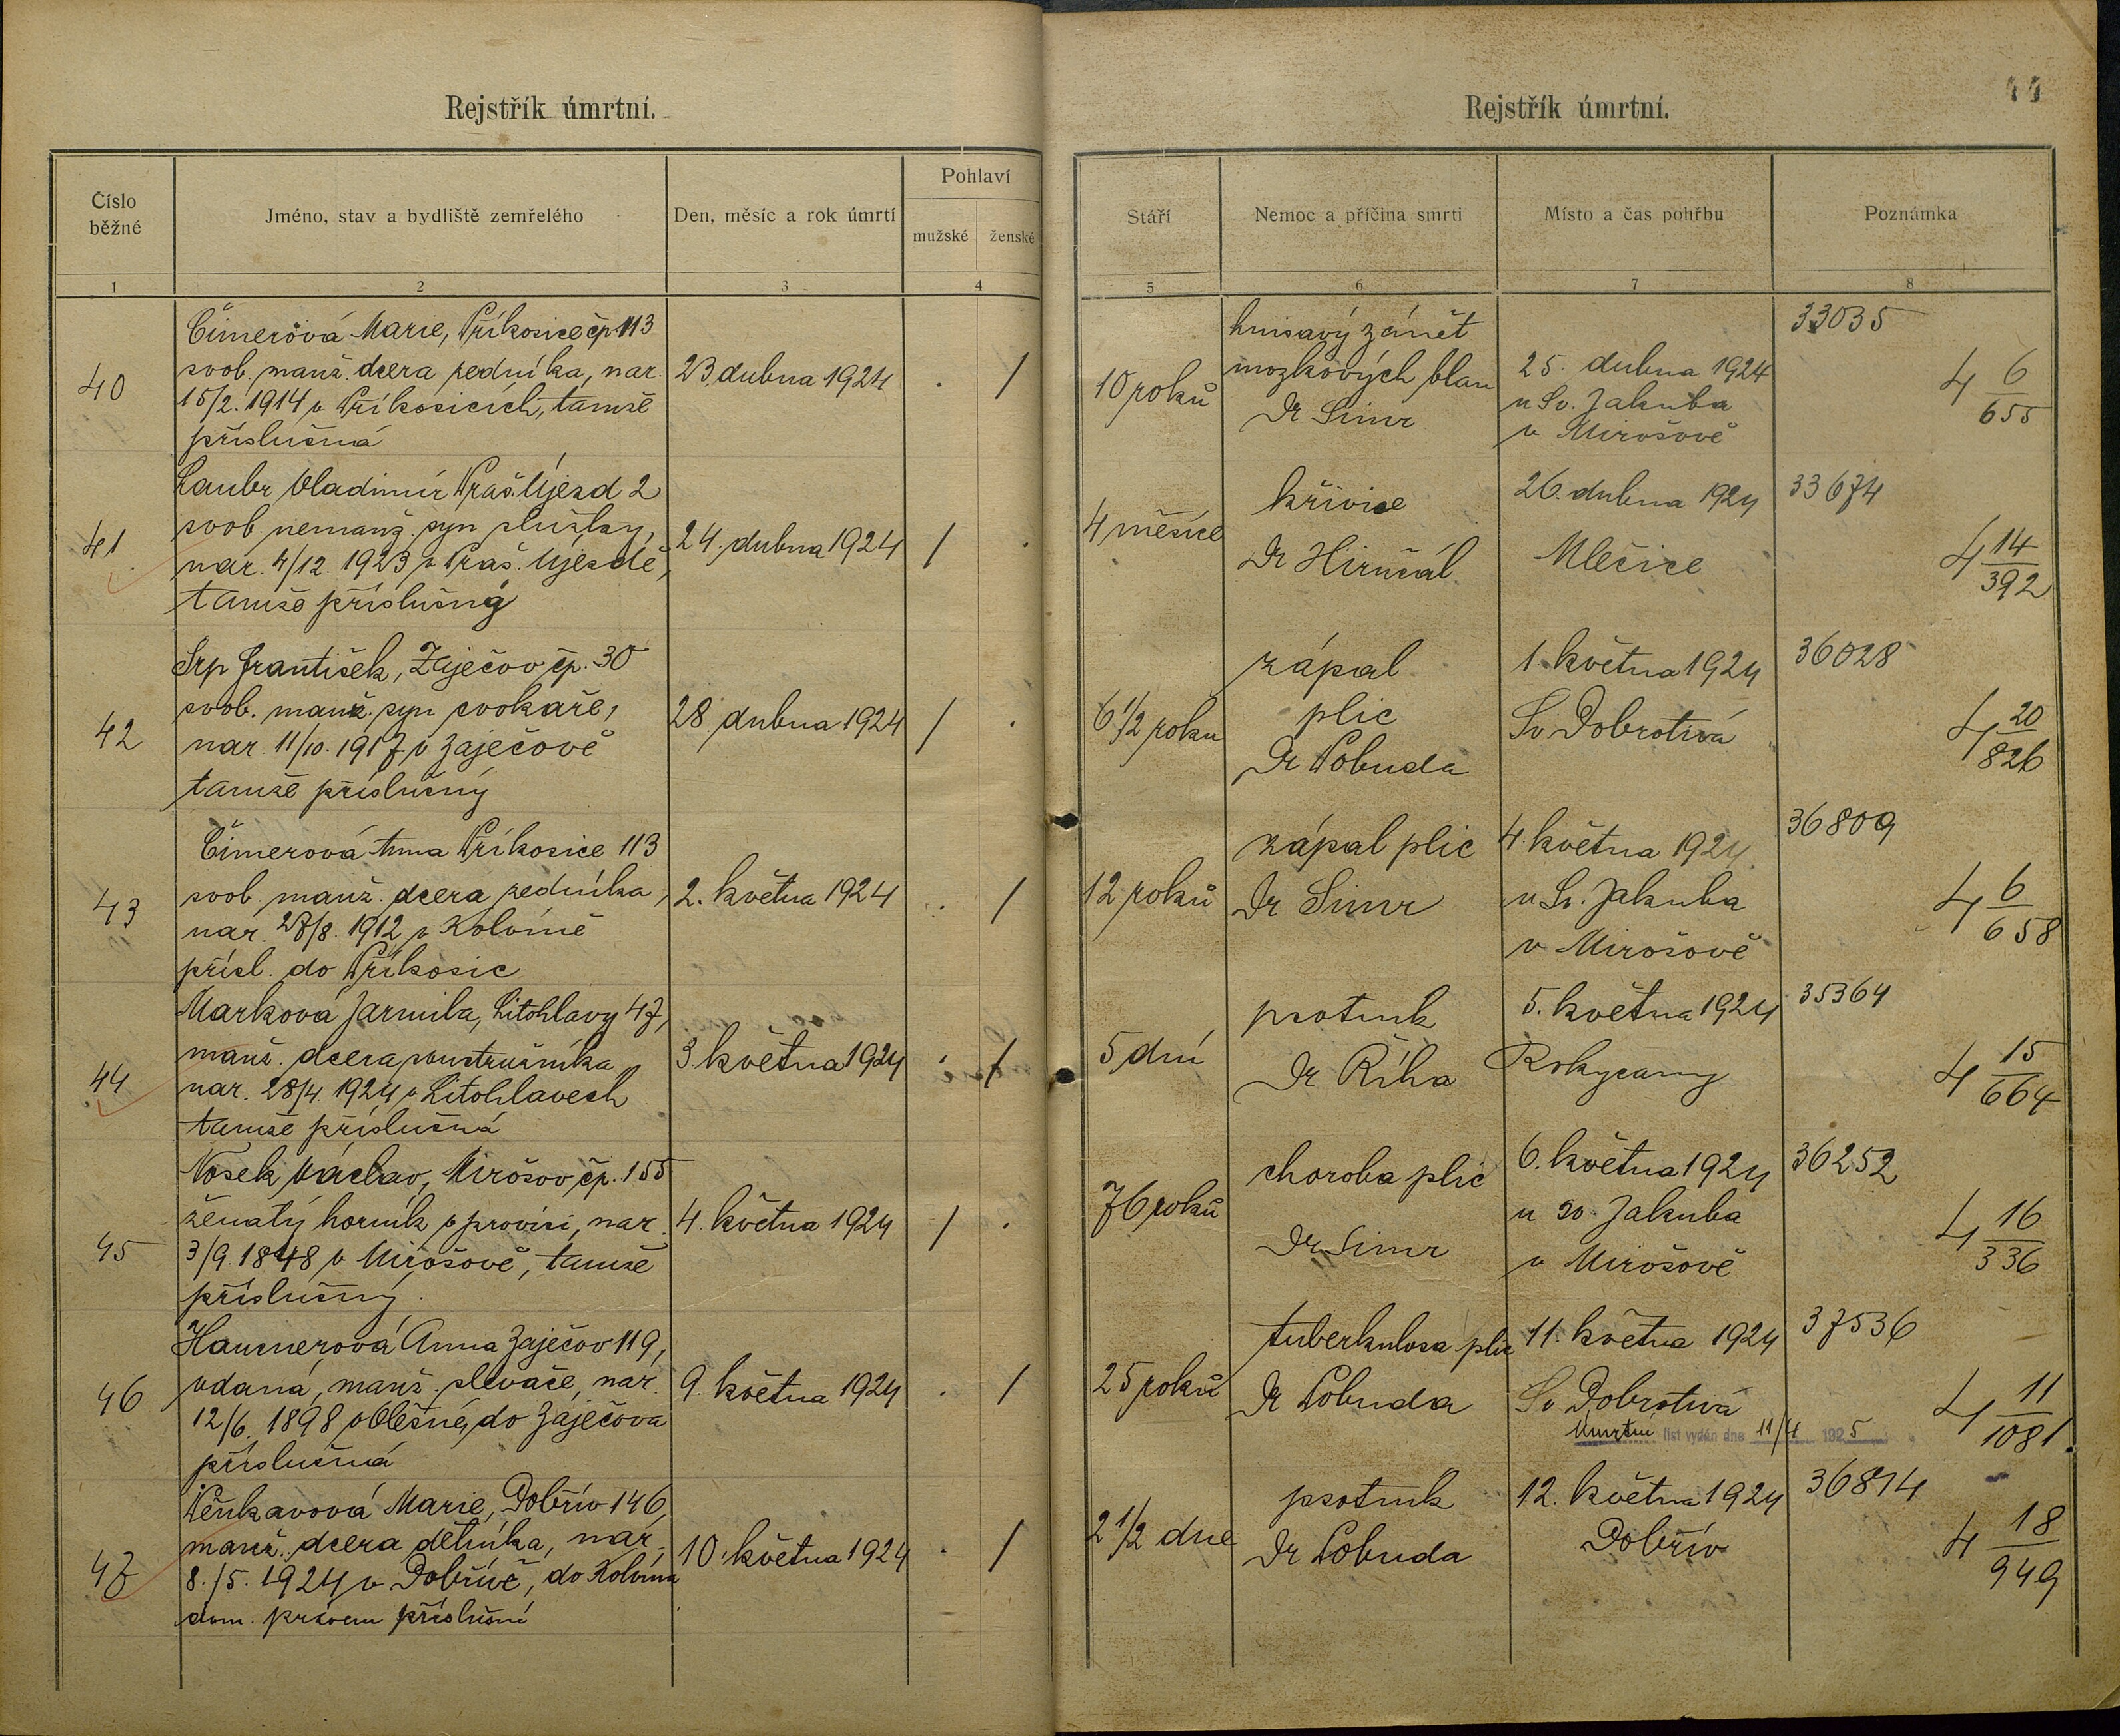 Rejstřík úmrtní.
Číslo běžné
Jméno, stav a bydliště zemřelého
Den, měsíc a rok úmrtí
Pohlaví
mužské
ženské
1
2
3
4
40
Čimerová Marie, Příkosice čp 113
svob. manž. dcera zedníka, nar.
15/2. 1914 v Příkosicích, tamže
příslušná
23. dubna 1924
. /
41
Laubr Vladimír Praš. Újezd 2
svob. nemanž. syn služky,
nar. 4/12. 1923 v Praš. Újezdě,
tamže příslušný
24. dubna 1924
/ .
42
Srp František, Zaječov čp. 30
svob. manž. syn cvokaře,
nar. 11/10. 1917 v Zaječově
tamže příslušný
28. dubna 1924
/ .
43
Čimerová Anna Příkosice 113
svob. manž. dcera zedníka,
nar. 28/8. 1912 v Kolvíně
přísl. do Příkosic
2. května 1924
. /
44
Marková Jarmila, Litohlavy 47,
manž. dcera soustružníka
nar. 28/4. 1924 v Litohlavech
tamže příslušná
3. května 1924
. /
45
Nosek Václav, Mirošov čp. 155
ženatý horník v provisi, nar.
3/9. 1848 v Mirošově, tamže
příslušný.
4. května 1924
/ .
46
Anna Zaječov 119,
vdaná, manž. slevače, nar.
12/6. 1898 v Olešné, do Zaječova
příslušná
9. května 1924
. /
47
Marie, Dobřív 146,
manž. dcera dělníka, nar.
8./5. 1924 v Dobřívě, do Kolvína
dom. právem příslušná
10. května 1924
. /
Rejstřík úmrtní.
Stáří
Nemoc a příčina smrti
Místo a čas pohřbu
Poznámka
5
6
7
8
10 roků
hnisavý zánět
mozkových blan
Dr Simr
25. dubna 1924
u Sv. Jakuba
v Mirošově
33035
4 6/655
4 měsíce
křivice
Dr Hiručál
26. dubna 1924
Mlečice
33674
4 14/392
6 1/2 roku
zápal
plic
Dr Lobuda
1. května 1924
Sv Dobrotivá
36028
4 20/826
12 roků
zápal plic
Dr Simr
4. května 1924
u Sv. Jakuba
v Mirošově
36809
4 6/658
5 dní
psotník
Dr Říha
5. května 1924
Rokycany
35364
4 15/664
76 roků
choroba plic
Dr Simr
6. května 1924
u sv. Jakuba
v Mirošově
36252
4 16/336
25 roků
tuberkulosa plic
Dr Lobuda
11. května 1924
Sv Dobrotivá
Úmrtní list vydán dne 11/4 1925
37536
4 11/1081.
2 1/2 dne
psotník
Dr Lobuda
12. května 1924
Dobřív
36814
4 18/949